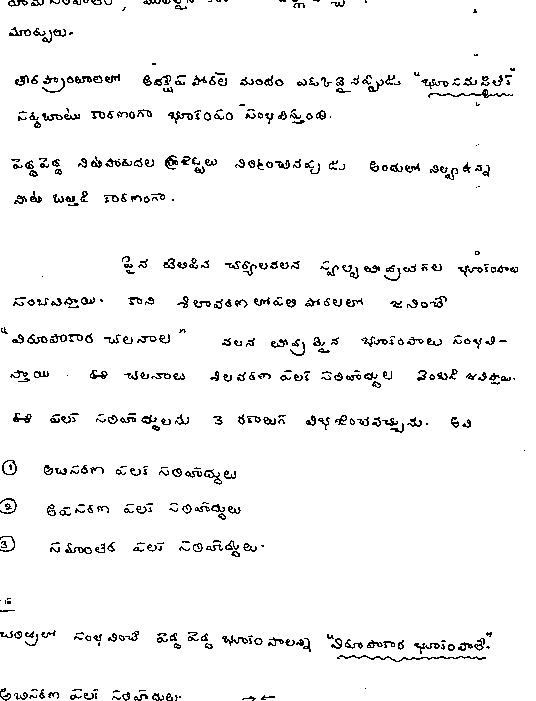 మార్పులు.
తీర ప్రాంతాలలో అవక్షేప పొరల మందం ఎక్కువైనప్పుడు "భూసమస్థితి"
సర్దుబాటు కారణంగా భూకంపం సంభవిస్తుంది.
పెద్ద పెద్ద నీటిపారుదల ప్రాజెక్టులు నిర్మించినప్పుడు అందులో నిల్వ ఉన్న
నీటి ఒత్తిడి కారణంగా.
పైన తెలిపిన చర్యలవలన స్వల్ప తీవ్రతగల భూకంపాలు
సంభవిస్తాయి. కాని శిలావరణ లోపలి పొరలలో జనించే
"విరూపాకార చలనాల" వలన తీవ్రమైన భూకంపాలు సంభవి-
స్తాయి. ఈ చలనాలు శిలావరణ పలక సరిహద్దుల వెంబడి జనిస్తాయి.
ఈ పలక సరిహద్దులను 3 రకాలుగా విభజించవచ్చును. అవి
① అభిసరణ పలక సరిహద్దులు
② అపసరణ పలక సరిహద్దులు
③ సమాంతర పలక సరిహద్దులు.
చరిత్రలో సంభవించే పెద్ద పెద్ద భూకంపాలన్నీ "విరూపాకార భూకంపాలే".
అభిసరణ పలక సరిహద్దులు →←